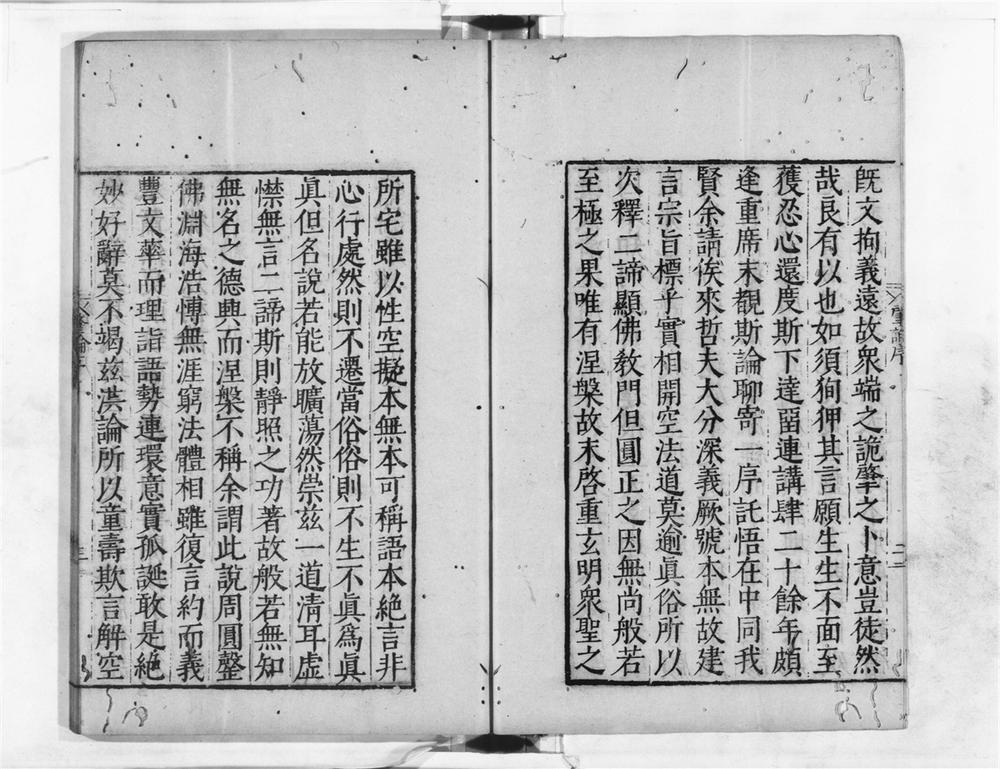 旣文拘義遠故衆端之詭肇之卜意豈徒然
哉良有以也如須狗狎其言願生生不面至
獲忍心還度斯下達畱連講肆二十餘年頗
逢重席末覩斯論聊寄一序託悟在中同我
賢余請俟來哲夫大分深義厥號本無故建
言宗旨標乎實相開空法道莫逾眞俗所以
次釋二諦顯佛敎門但圓正之因無尚般若
至極之果唯有涅槃故末啓重玄明衆聖之
所宅雖以性空擬本無本可稱語本絕言非
心行處然則不遷當俗俗則不生不眞爲眞
眞但名說若能放曠蕩然崇兹一道淸耳虛
襟無言二諦斯則靜照之功著故般若無知
無名之德興而涅槃不稱余謂此說周圓罄
佛淵海浩愽無涯窮法體相雖復言約而義
豐文華而理詣語勢連環意實孤誕敢是絕
妙好辭莫不竭兹洪論所以童壽歎言解空
肇論序
二